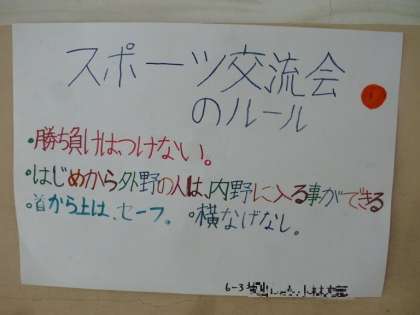 スポーツ交流会
のルール
・勝ち負けはつけない。
・はじめから外野の人は、内野に入る事ができる
・首から上は、セーフ。 ・横なげなし。
6-3